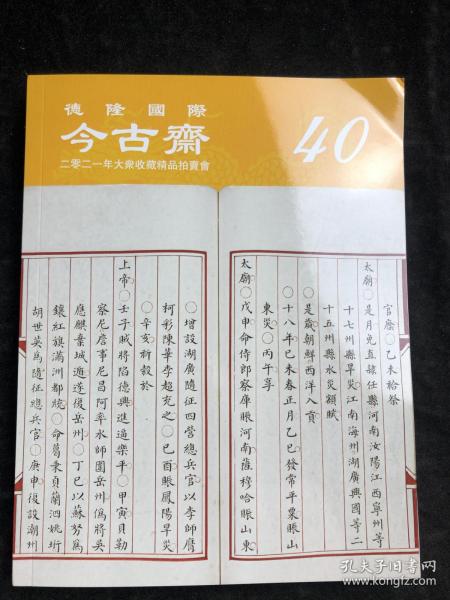 德隆國際
今古齋
二零二一年大衆收藏精品拍賣會
40
官廕○乙未祫祭
太廟○是月免直隸任縣河南汝陽江西寧州等
十七州縣旱災江南海州湖廣興國等二
十五州縣水災額賦
○是歲朝鮮西洋入貢
○十八年己未春正月乙巳發常平粟賑山
東災○丙午享
太廟○戊申命侍郎察庫賑河南薩穆哈賑山東
○增設湖廣隨征四營總兵官以李師膺
柯彩陳華李超充之○己酉賑鳳陽旱災
○辛亥祈穀於
上帝○壬子賊將陷德興進逼樂平○甲寅貝勒
察尼詹事尼昌阿率水師圍岳州僞將英
應麒棄城遁遂復岳州○丁巳以蘇努爲
鑲紅旗滿洲都統○命葛秉貞蘭泗姚珩
胡世英爲隨征總兵官○庚申復設潮州
孔夫子旧书网
www.kongfz.com